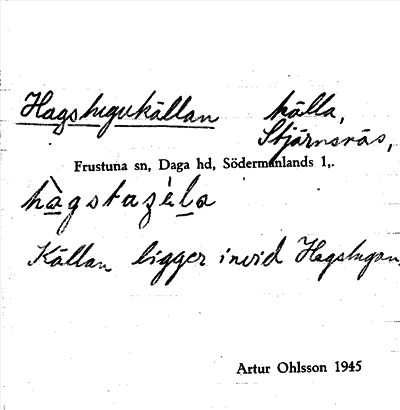 Hagstugukällan källa,
Stjärnsnäs,
Frustuna sn, Daga hd, Södermanlands l,.
Källan ligger invid Hagstugan.
Artur Ohlsson 1945